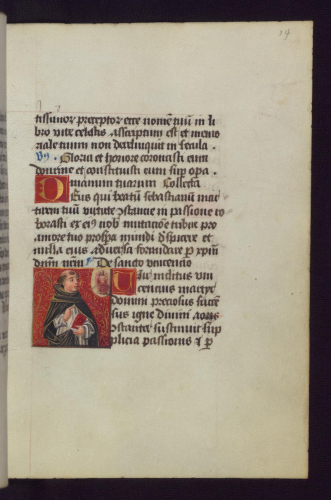 tissimor preceptor ecce nomē tuū in li
bro vite celestis asscriptum est et memo
riale tuum non derelinquit in secula
Gloria et honore coronasti eum
domine et constituisti eum sup opa
manuum tuarum Collecta
Deus qui beatū sebastianū mar
tirem tuū virtute ꝯstancie in passione ro
borasti ex eiꝰ nob imitacōne tribue pro
amore tuo prospa mundi despicere et
nulla eius adversa formidare p xpm
dnm nrm De sancto vincencio
martyr
domini preciosus
sus igne divini
ꝯstanter sustinuit sup
plicia passionis